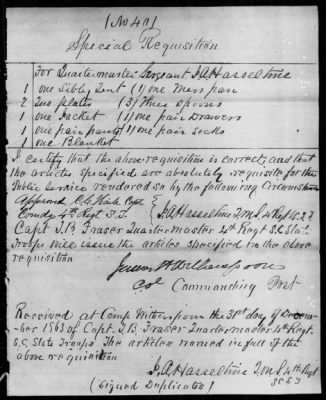 (No 40)
Special Requisition
For Quartermaster Sergeant J. A. Hasseltine
1 one Sibley Tent (1) one Mess pan
2 Two plates (3) Three spoons
1 one Jacket (1) one pair Drawers
1 one pair pants (1) one pair socks
1 one Blanket
I certify that the above requisition is correct, and that
the articles specified are absolutely requisite for the
Public Service rendered so by the following Circumstan
Approved Capt
Comdg 4th Regt S.T. } J. A. Hasseltine Q.M.S. 4 Regt S.C.S.T
Capt J. B. Fraser Quartermaster 4th Regt S.C. State
Troops will issue the articles specified in the above
requisition
James H. Witherspoon
Col Commanding Post
Received at Camp Witherspoon the 31st day of Decem-
ber 1863 of Capt. J. B. Fraser Quartermaster 4th Regt.
S.C. State Troops. The articles named in full of the
above requisition
J. A. Hasseltine Q.M.S. 4th Regt
(Signed Duplicates) S C S T